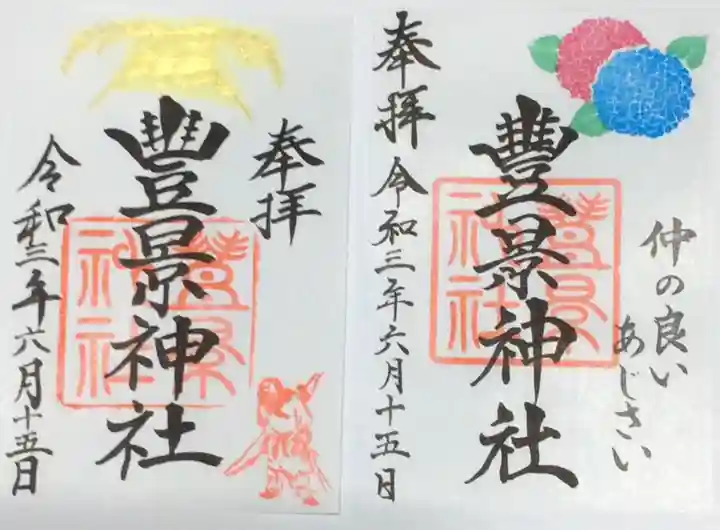 奉拝
豊景神社
令和三年六月十五日
豊景
神社
奉拝
令和三年六月十五日
豊景神社
仲の良い
あじさい
豊景
神社